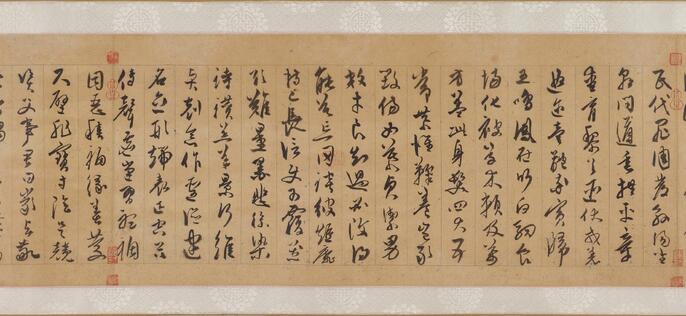 民伐罪周發殷湯坐
朝問道垂拱平章
愛育黎首臣伏戎羌
遐邇壹體率賓歸
王鳴鳳在竹白駒食
場化被草木賴及萬
方蓋此身髮四大五
常恭惟鞠養豈敢
毀傷女慕貞潔男
效才良知過必改得
能莫忘罔談彼短靡
恃己長信使可覆器
欲難量墨悲絲染
詩讚羔羊景行維
賢剋念作聖德建
名立形端表正空谷
傳聲虛堂習聽禍
因惡積福緣善慶
尺璧非寶寸陰是競
資父事君曰嚴與敬